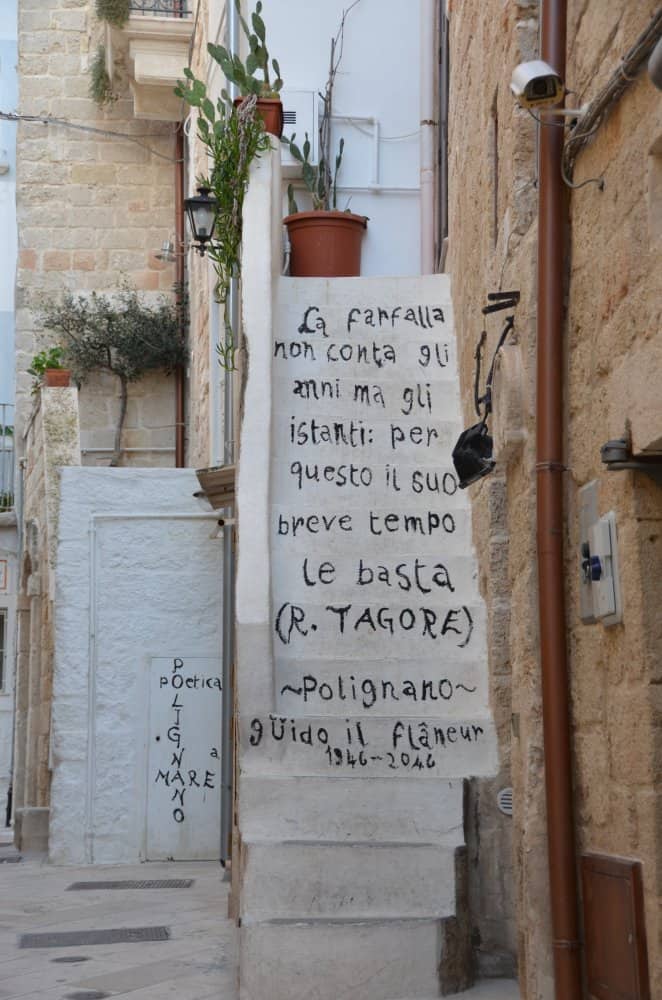 La farfalla
non conta gli
anni ma gli
istanti: per
questo il suo
breve tempo
le basta
(R. TAGORE)
~Polignano~
gÜido il flâneur
1946-2046
POLIGNANO
Poetica
a
MARE